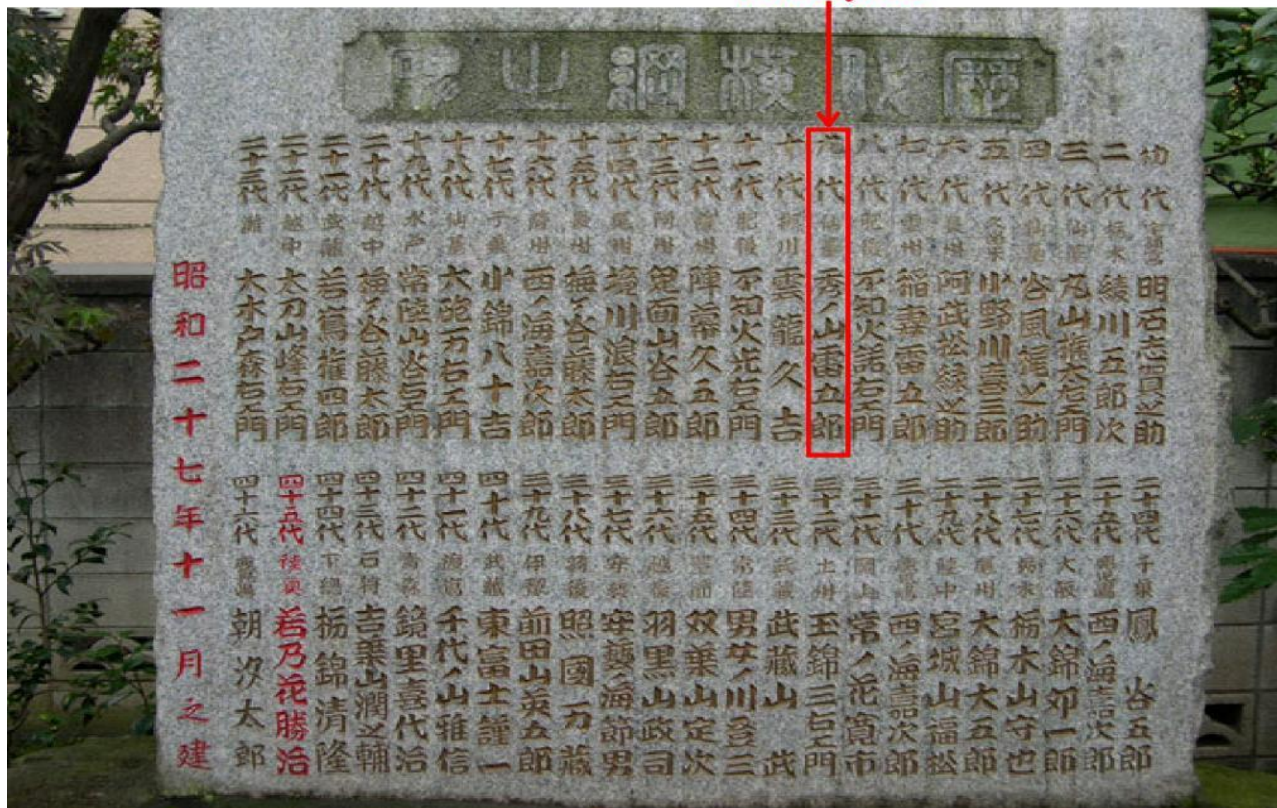 歴代横綱之碑
初代 明石志賀之助
二代 栃木 綾川五郎次
三代 丸山権太左エ門
四代 谷風梶之助
五代 久留米 小野川喜三郎
六代 長州 阿武松緑之助
七代 雲州 稲妻雷五郎
八代 肥後 不知火諾右エ門
九代 仙臺 秀ノ山雷五郎
十代 柳川 雲龍久吉
十一代 肥後 不知火光右エ門
十二代 薩州 陣幕久五郎
十三代 阿州 鬼面山谷五郎
十四代 尾州 境川浪右エ門
十五代 梅ヶ谷藤太郎
十六代 薩州 西ノ海嘉次郎
十七代 千葉 小錦八十吉
十八代 大砲万右エ門
十九代 水戸 常陸山谷右エ門
二十代 越中 梅ヶ谷藤太郎
二十一代 武蔵 若嶌権四郎
二十二代 越中 太刀山峰右エ門
二十三代 灘 大木戸森右エ門
二十四代 千葉 鳳 谷五郎
二十五代 西ノ海嘉次郎
二十六代 大阪 大錦卯一郎
二十七代 栃木 栃木山守也
二十八代 大錦大五郎
二十九代 陸中 宮城山福松
三十代 西ノ海嘉次郎
三十一代 岡山 常ノ花寛市
三十二代 土州 玉錦三右エ門
三十三代 武蔵 武藏山 武
三十四代 常陸 男女ノ川登三
三十五代 豊前 双葉山定次
三十六代 越後 羽黒山政司
三十七代 安芸 安藝ノ海節男
三十八代 羽後 照國万藏
三十九代 伊豫 前田山英五郎
四十代 武蔵 東富士謹一
四十一代 千代ノ山雅信
四十二代 青森 鏡里喜代治
四十三代 石狩 吉葉山潤之輔
四十四代 下總 栃錦清隆
四十五代 陸奥 若乃花勝治
四十六代 朝汐太郎
昭和二十七年十一月之建